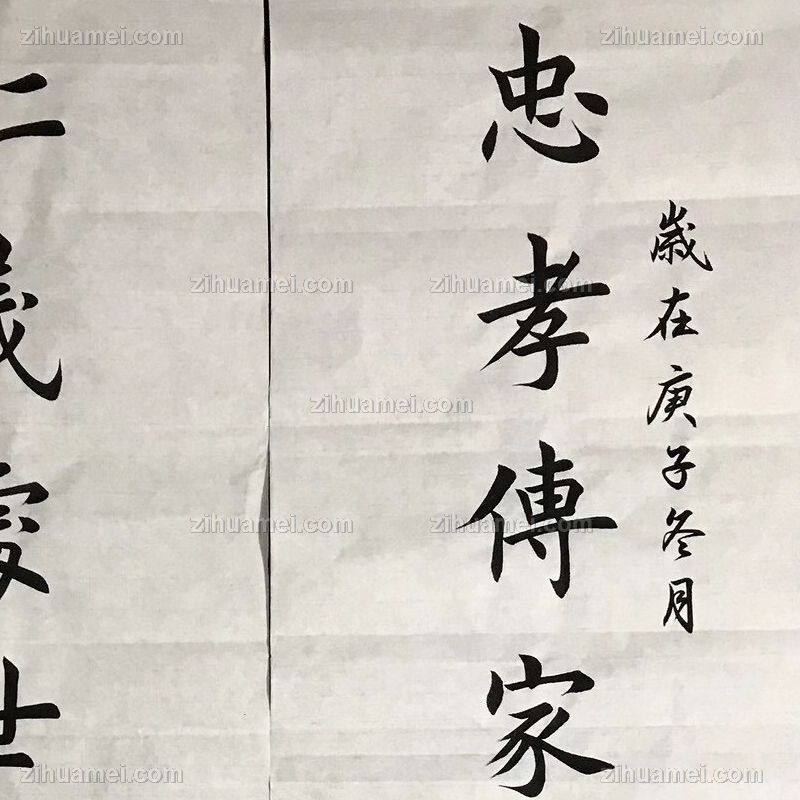 歲在庚子冬月
忠孝傳家
仁義處世
zihuamei.com
zihuamei.com
zihuamei.com
zihuamei.com
zihuamei.com
zihuamei.com
zihuamei.com
zihuamei.com
zihuamei.com